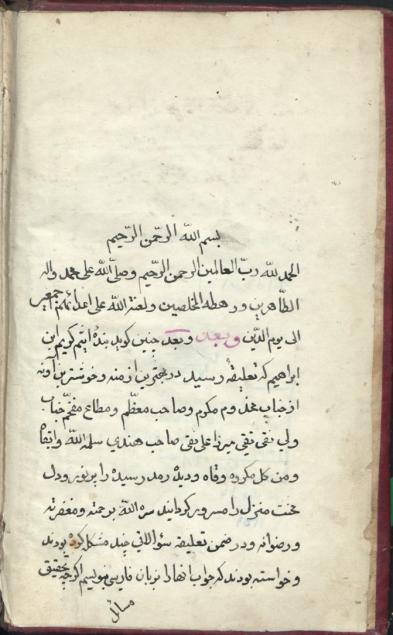 بسم الله الرحمن الرحیم
الحمد لله رب العالمین الرحمن الرحیم و صلی الله علی محمد و اله
الطاهرین و رهطه المخلصین و لعنة الله علی اعدائهم اجمعین
الی یوم الدین و بعد و بعد چنین کوید بندۀ اثیم کریم ابن
ابراهیم که تعلیقۀ رسید در بهترین ازمنه و خوشترین آونه
از جناب مخدوم مکرم و صاحب معظم و مطاع مفخم جناب
ولی نقی تقی میرزا علی نقی صاحب هندی سلمه الله و ابقاه
و من کل مکروه وقاه و دیدۀ رمد رسیده را پرنور و دل
محنت منزل را مسرور کردانید سره الله برحمته و مغفرته
و رضوانه و در ضمن تعلیقه سؤالاتی چند مشکل کرده بودند
و خواسته بودند که جواب انها را بزبان فارسی بنویسم اکرچه تحقیق
مسائل